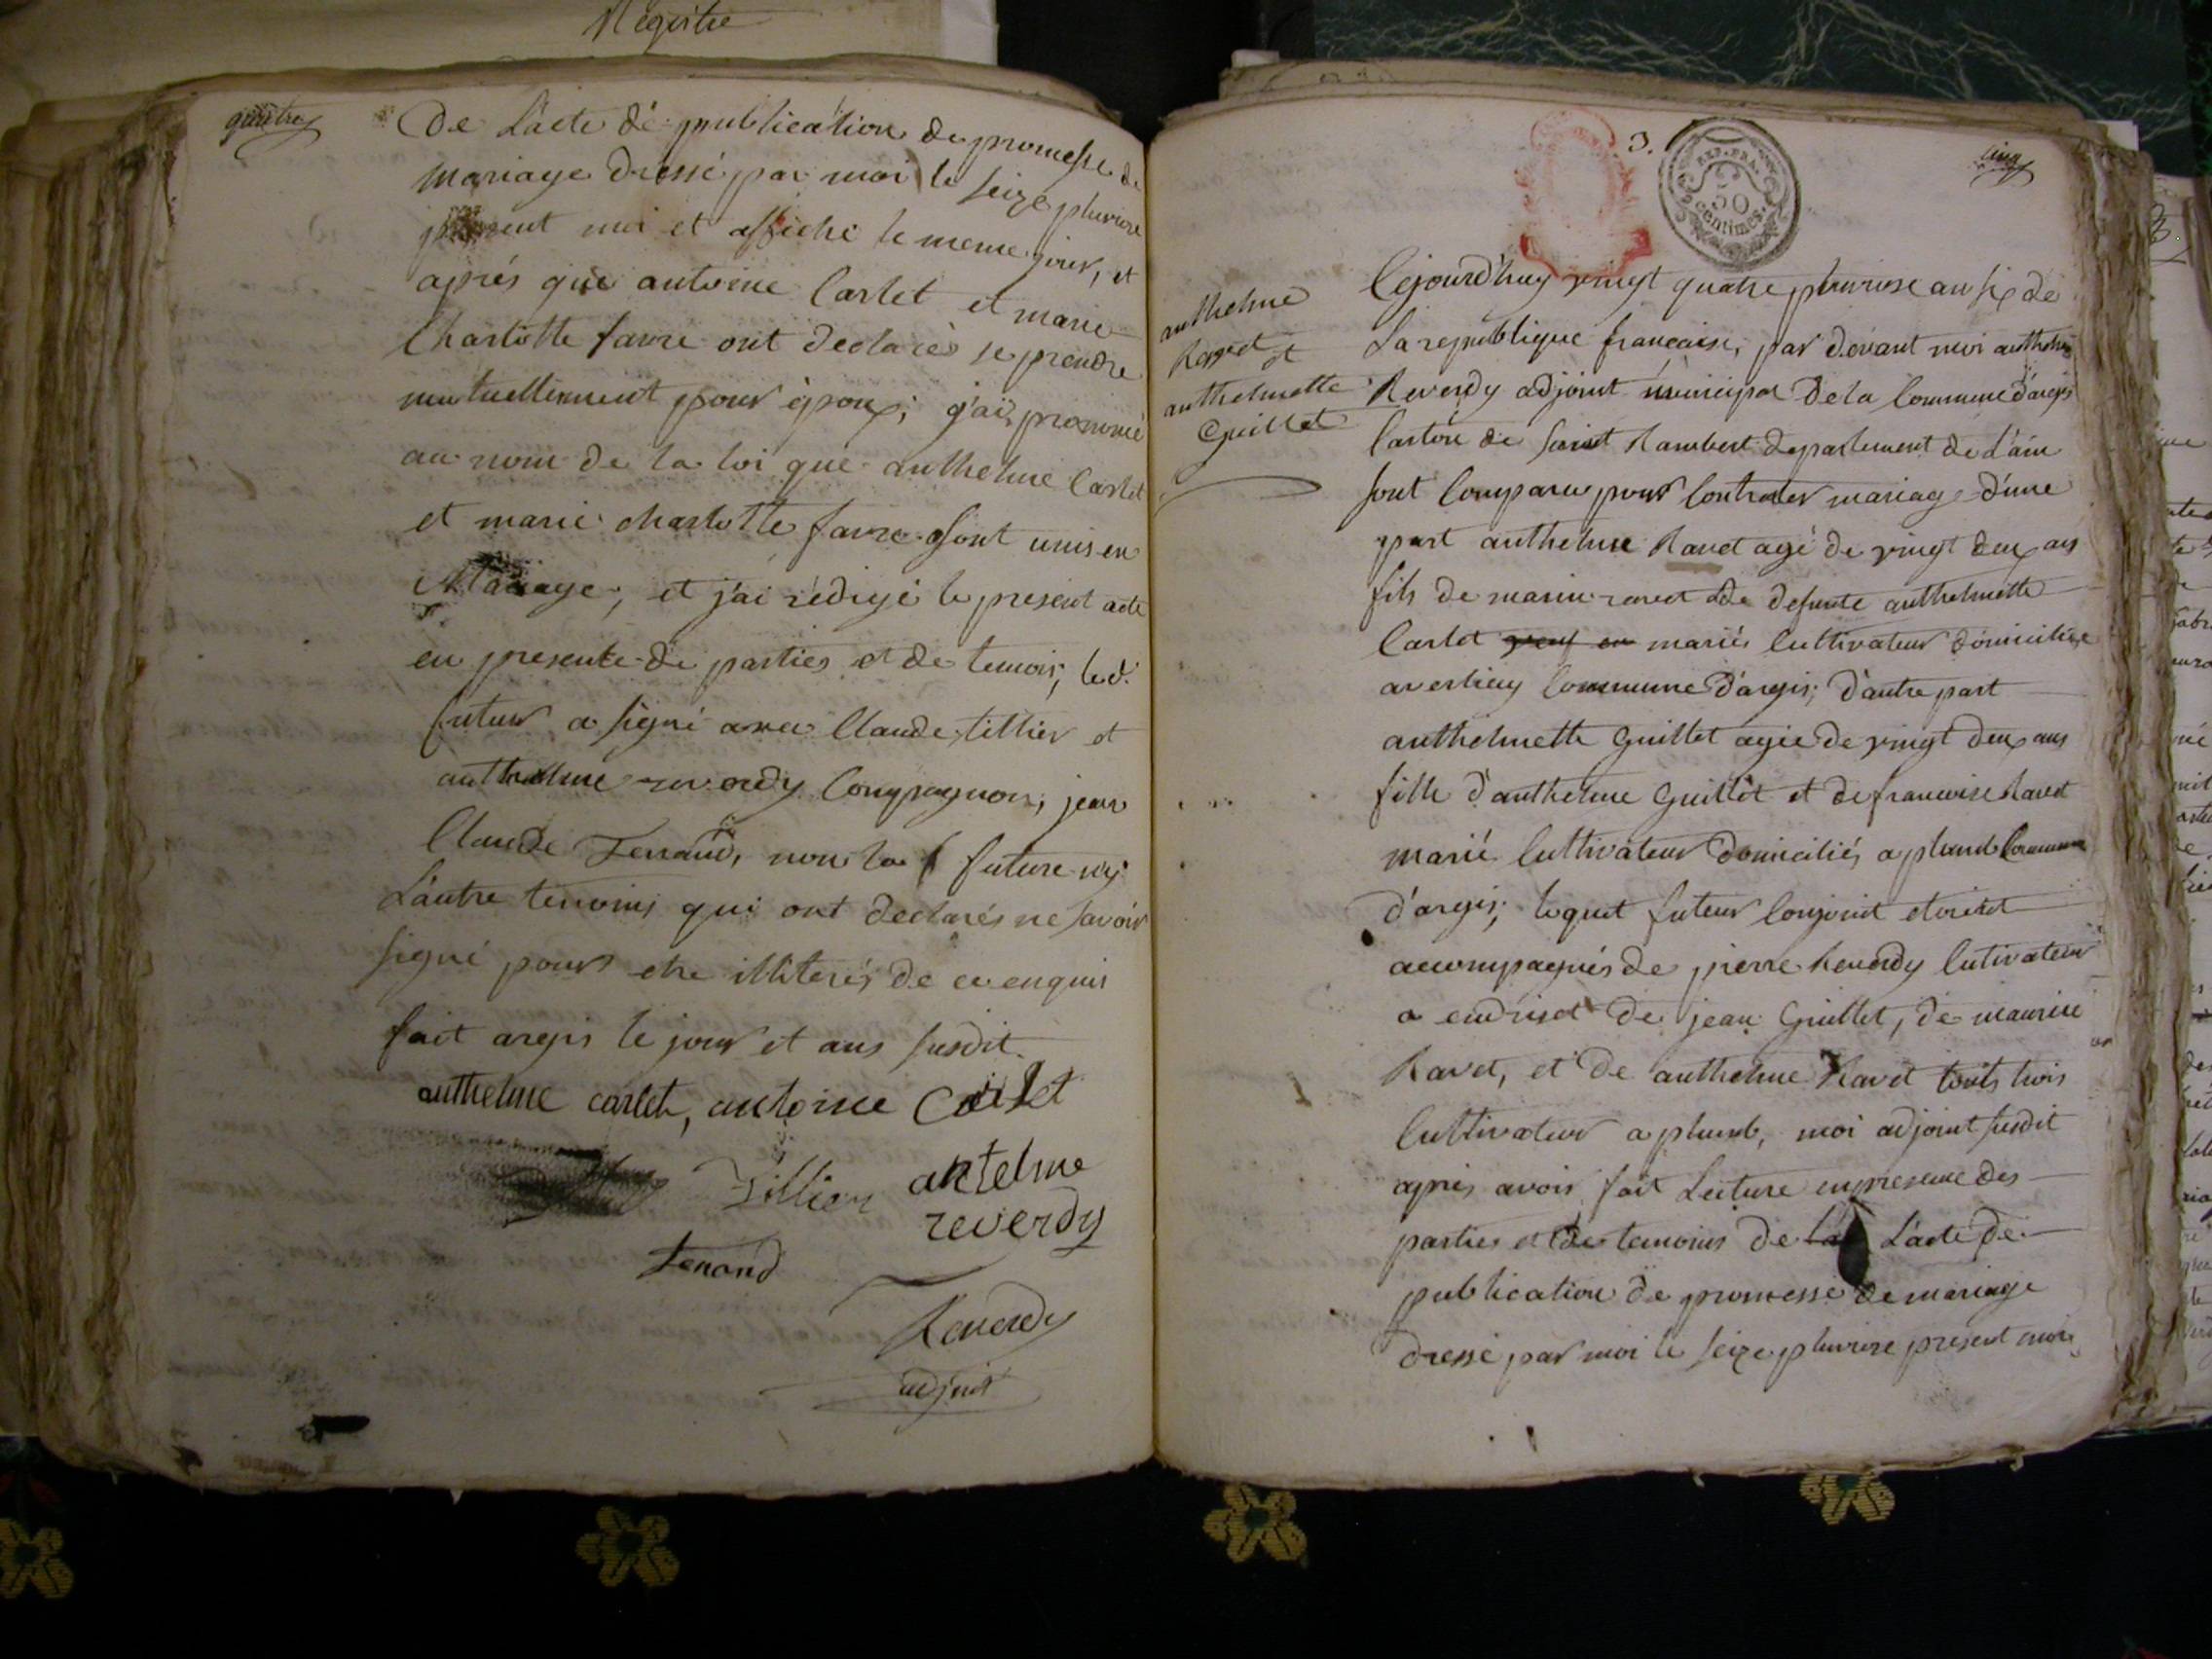 Registre
quatre
De L'acte de publication de promesse de
mariage dressé par moi le seize pluviose
present moi et affiché le meme jour, et
aprés que antoine Carlet et marie
Charlotte favre ont declarés se prendre
mutuellement pour époux; j'ai prononcé
au nom de la loi que anthelme Carlet
et marie charlotte favre sont unis en
Mariage, et j'ai rédigé le present acte
en presente de parties et de temois; led.
futur a signé avec Claude tillier et
anthelme reverdy Compagnon, jean
Claude Tenand, non la future ny
L'autre temoins qui ont declarés ne savoir
signé pour etre illiterés de ce enquis
fait argis le jour et ans susdit.
anthelme carlet, antoine Carlet
Tillier antelme
reverdy
Tenand
Reverdy
adjoint
3.
cinq
REP. FRA.
50
centimes
anthelme
Ravet et
anthelmette
Guillet
Cejourd'huy vingt quatre pluviose an six de
La republique francaise, par devant moi anthelme
Reverdy adjoint municipal De la Commune d'argis
Canton de saint Rambert departement de L'ain
sont Comparu pour Contracter mariage d'une
part anthelme Ravet agé de vingt deux ans
fils de marin ravet et de defunte anthelmette
Carlet mariés Cultivateur domiciliée
averliey Commune D'argis; D'autre part
anthelmette Guillet agée de vingt deux ans
fille d'anthelme Guillet et de francoise Ravet
marié Cultivateur Domiciliés a plumb Commune
d'argis, lequel futeur Conjoint etoient
accompagnés de pierre Reverdy Cultivateur
a de jean Guillet, de maurice
Ravet, et De anthelme Ravet touts trois
Cultivateur a plumb, moi adjoint susdit
aprés avoir fait Lecture en presence des
parties et des temoins De la L'acte de
publication de promesse de mariage
dressé par moi le seize pluviose present mois